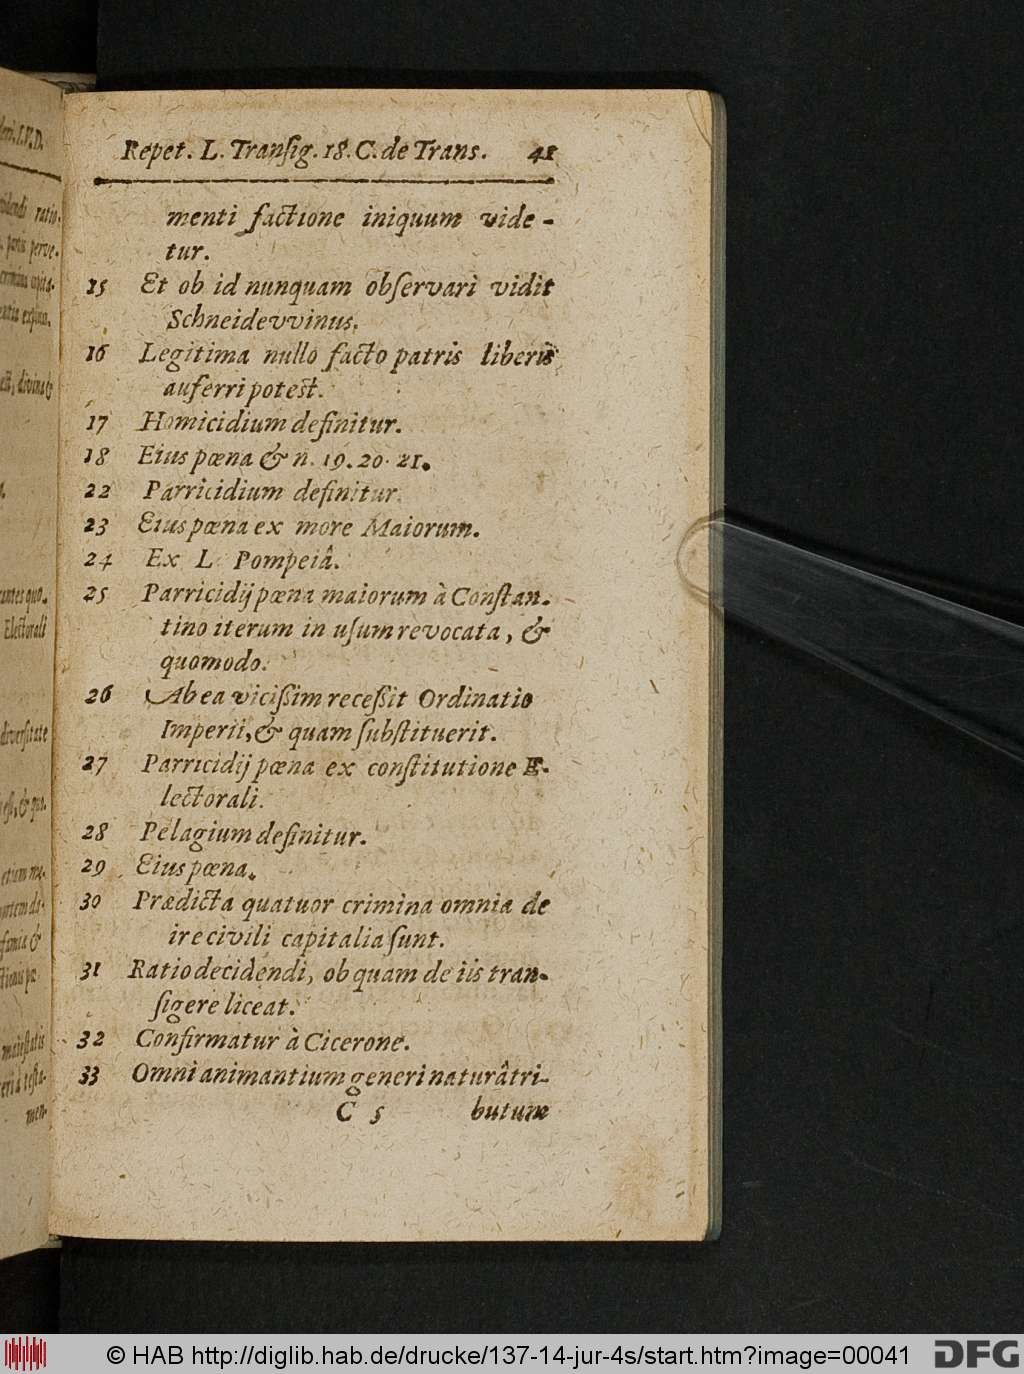 Repet. L. Transig. 18. C. de Trans. 41
menti factione iniquum vide-
tur.
15 Et ob id nunquam observari vidit
Schneidevvinus.
16 Legitima nullo facto patris liberis
auferri potest.
17 Homicidium definitur.
18 Eius pœna & n. 19. 20. 21.
22 Parricidium definitur.
23 Eius pœna ex more Maiorum.
24 Ex L Pompeiâ.
25 Parricidij pœna maiorum à Constan-
tino iterum in usum revocata, &
quomodo.
26 Ab ea vicissim recessit Ordinatio
Imperii, & quam substituerit.
27 Parricidij pœna ex constitutione E-
lectorali.
28 Pelagium definitur.
29 Eius pœna.
30 Prædicta quatuor crimina omnia de
ire civili capitalia sunt.
31 Ratio decidendi, ob quam de iis tran-
sigere liceat.
32 Confirmatur à Cicerone.
33 Omni animantium generi naturâ tri-
C 5 butum
© HAB http://diglib.hab.de/drucke/137-14-jur-4s/start.htm?image=00041 DFG